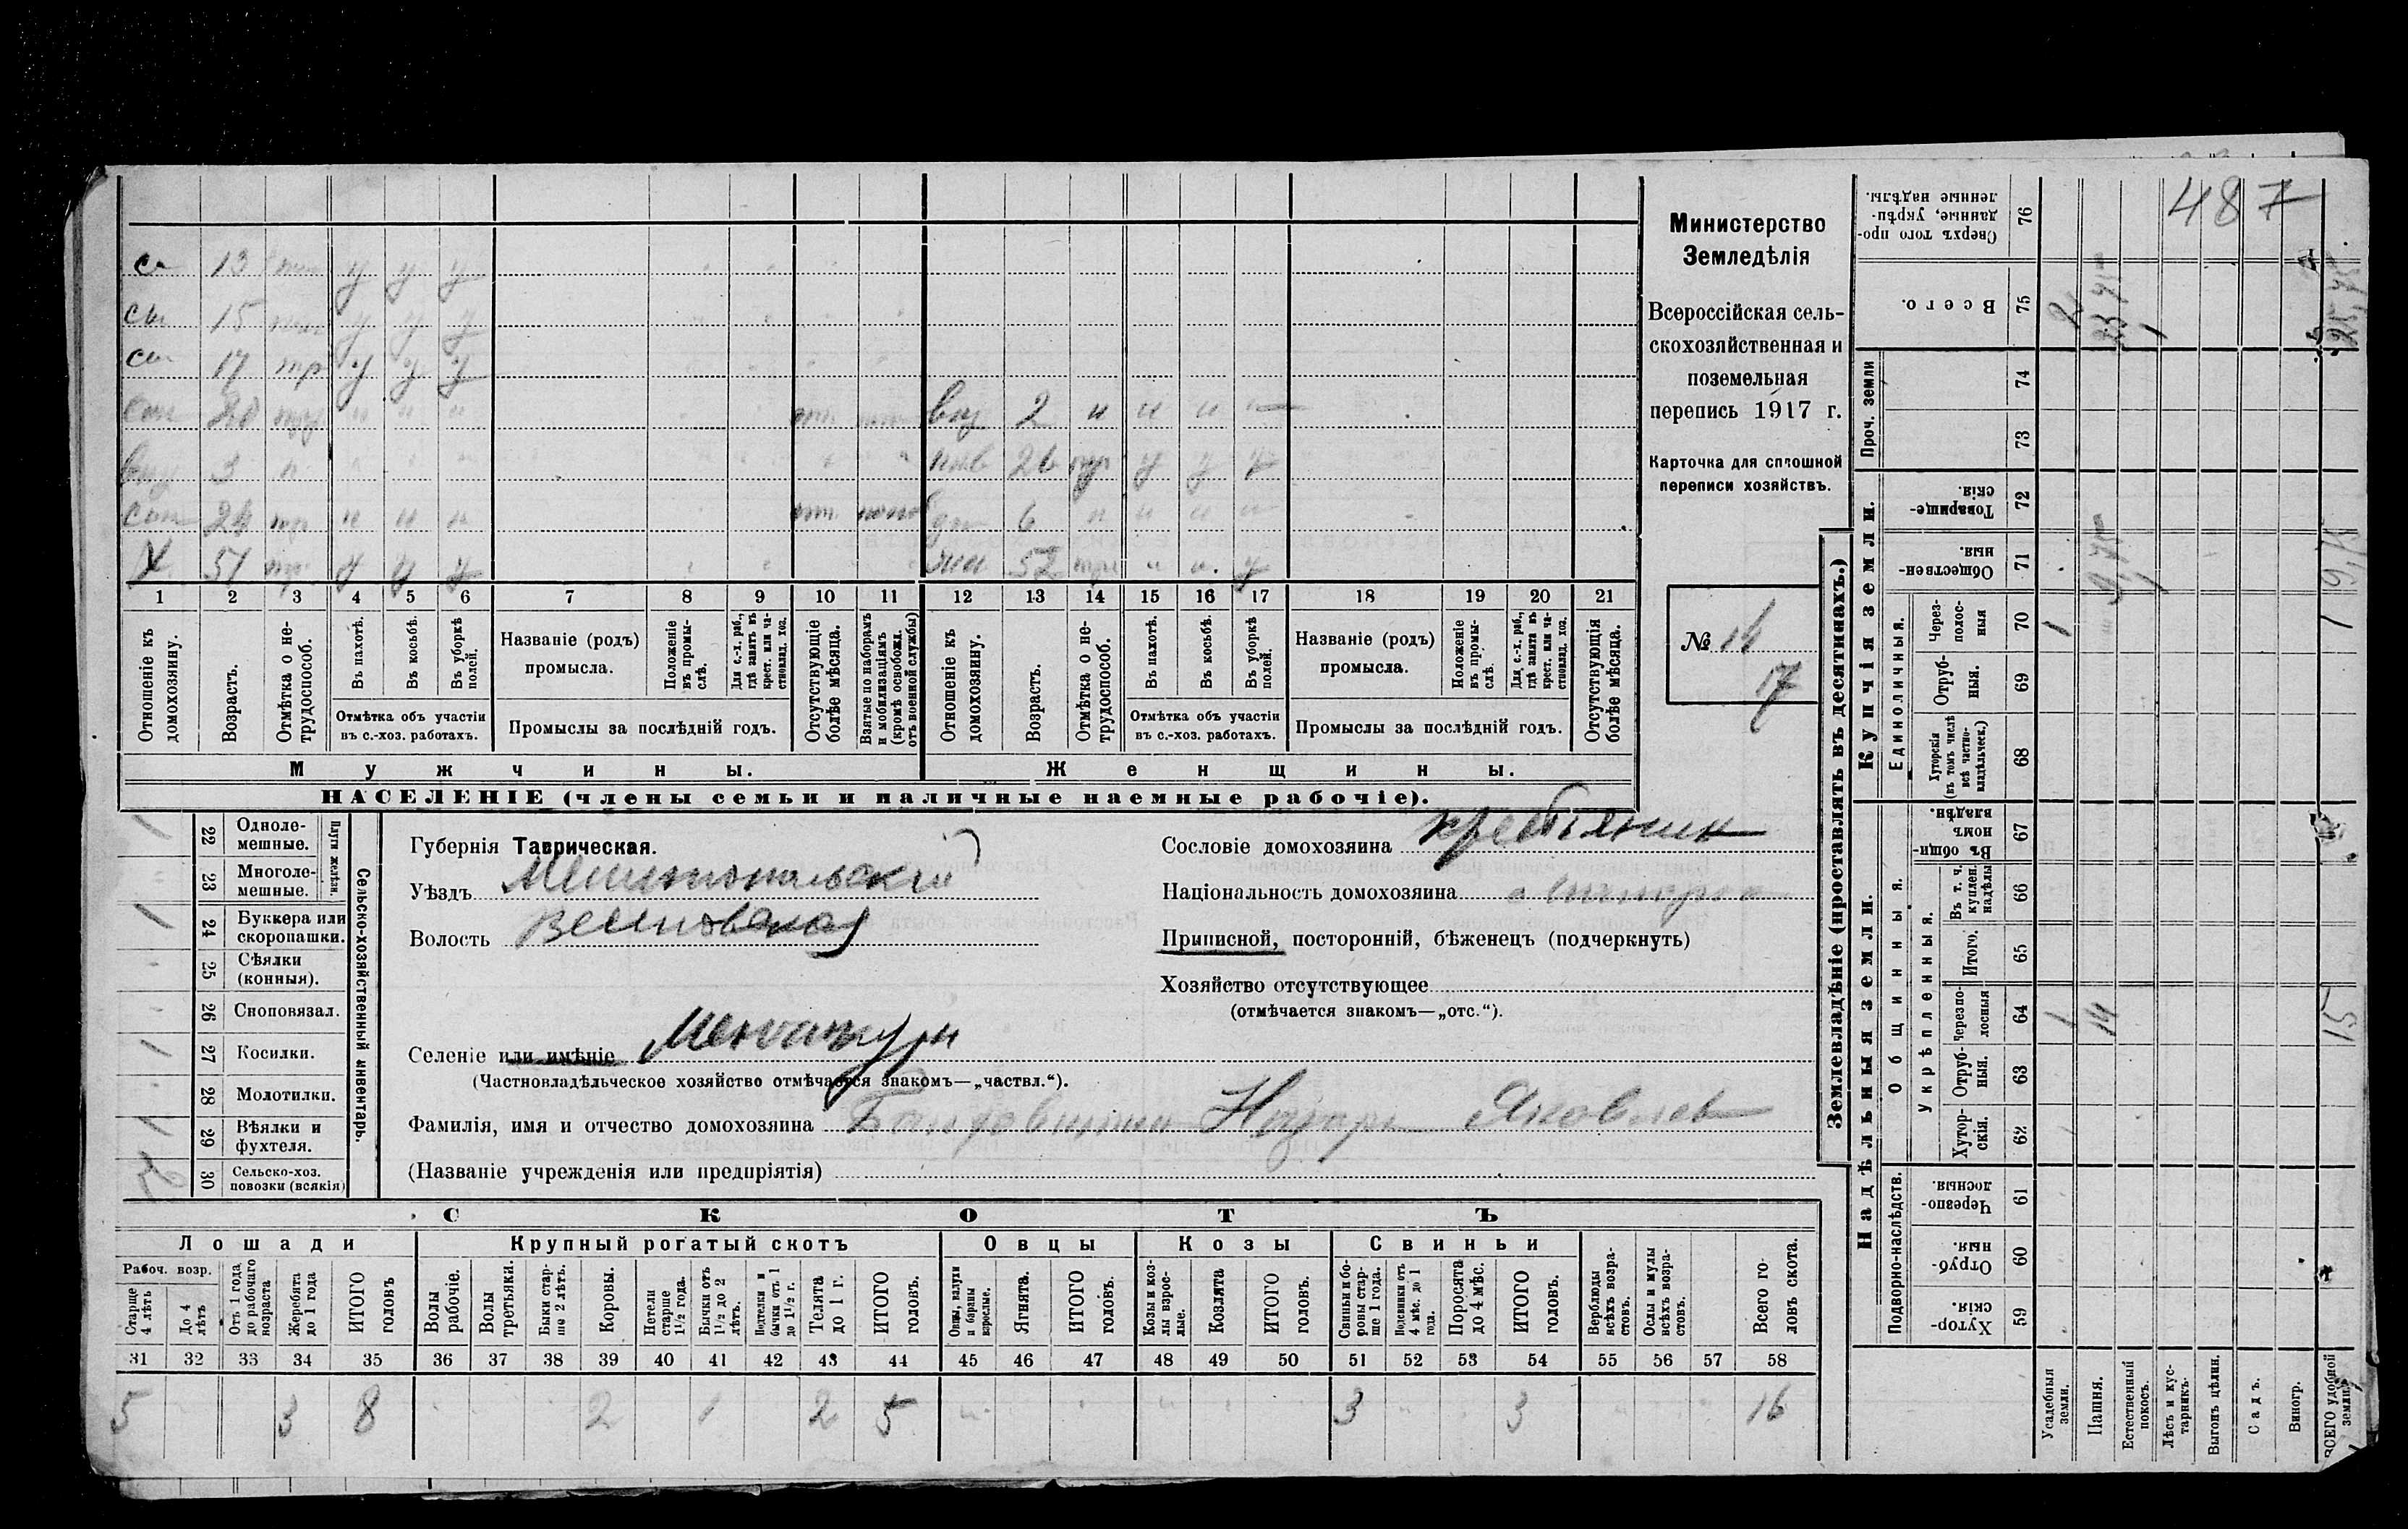 487
Министерство
Земледѣлія
Всероссійская сель-
скохозяйственная и
поземельная
перепись 1917 г.
Карточка для сплошной
переписи хозяйствъ.
№ 14
17
13 у у у
15 у у у
17 тр у у у
вну 2 н н н
вну 3 н
26 тр у у у
сын 24 тр н н н
6 н н н
51 тр у у у
52 у
1 2 3 4 5 6 7 8 9 10 11 12 13 14 15 16 17 18 19 20 21
Отношеніе къ домохозяину.
Возрастъ.
Отмѣтка о не-трудоспособ.
Въ пахотѣ.
Въ косьбѣ.
Въ уборкѣ полей.
Отмѣтка объ участіи
въ с.-хоз. работахъ.
Названіе (родъ)
промысла.
Положеніе въ промы-слѣ.
Для с.-х. раб., гдѣ занятъ въ крест. или ча-стновлад. хоз.
Промыслы за послѣдній годъ.
Отсутствующіе болѣе мѣсяца.
Взятые по наборамъ и мобилизаціямъ (кромѣ освобожд. отъ военной службы)
Отношеніе къ домохозяину.
Возрастъ.
Отмѣтка о не-трудоспособ.
Въ пахотѣ.
Въ косьбѣ.
Въ уборкѣ полей.
Отмѣтка объ участіи
въ с.-хоз. работахъ.
Названіе (родъ)
промысла.
Положеніе въ промы-слѣ.
Для с.-х. раб., гдѣ занята въ крест. или ча-стновлад. хоз.
Промыслы за послѣдній годъ.
Отсутствующія болѣе мѣсяца.
Мужчины.
Женщины.
НАСЕЛЕНІЕ (члены семьи и наличные наемные рабочіе).
Губернія Таврическая.
Уѣздъ Мелитопольскій
Волость Веселовская
Селеніе или имѣніе Менчикуры
(Частновладѣльческое хозяйство отмѣчается знакомъ—„частвл.“).
Фамилія, имя и отчество домохозяина Назаръ Яковлев
(Названіе учрежденія или предпріятія)
Сословіе домохозяина крестьянин
Національность домохозяина
Приписной, посторонній, бѣженецъ (подчеркнуть)
Хозяйство отсутствующее
(отмѣчается знакомъ—„отс.“).
Сельско-хозяйственный инвентарь.
Плуги желѣзн.
22 Одноле-мешные. 1
23 Многоле-мешные.
24 Буккера или скоропашки. 1
25 Сѣялки (конныя).
26 Сноповязал.
27 Косилки. 1
28 Молотилки.
29 Вѣялки и фухтеля. 1
30 Сельско-хоз. повозки (всякія)
СКОТЪ
Лошади
Крупный рогатый скотъ
Овцы
Козы
Свиньи
Рабоч. возр.
Старше 4 лѣтъ
До 4 лѣтъ
Отъ 1 года до рабочаго возраста
Жеребята до 1 года
ИТОГО головъ
Волы рабочіе.
Волы третьяки.
Быки стар-ше 2 лѣтъ.
Коровы.
Нетели старше 1 1/2 года.
Бычки отъ 1 1/2 до 2 лѣтъ.
Подтелки и бычки отъ 1 до 1 1/2 г.
Телята до 1 г.
ИТОГО головъ.
Овцы, валухи и бараны взрослые.
Ягнята.
ИТОГО головъ.
Козы и коз-лы взрос-лые.
Козлята
ИТОГО головъ.
Свиньи и бо-ровы стар-ше 1 года.
Подсвинки отъ 4 мѣс. до 1 года.
Поросята до 4 мѣс.
ИТОГО головъ.
Верблюды всѣхъ возра-стовъ.
Ослы и мулы всѣхъ возра-стовъ.
Всего го-ловъ скота.
31 32 33 34 35 36 37 38 39 40 41 42 43 44 45 46 47 48 49 50 51 52 53 54 55 56 57 58
5 3 8 2 1 2 5 3 3 16
Землевладѣніе (проставлять въ десятинахъ.)
Надѣльныя земли.
Купчія земли.
Проч. земли
Подворно-наслѣдств.
Общинныя.
Укрѣпленныя.
Единоличныя.
Хутор-скія. 59
Отруб-ныя. 60
Черезпо-лосныя. 61
Хутор-скія. 62
Отруб-ныя. 63
Черезпо-лосныя 64
Итого. 65
Въ т. ч. куплен. надѣлы 66
Въ общи-номъ владѣн. 67
Хуторскія (въ томъ числѣ всѣ частно-владѣльческ.) 68
Отруб-ныя. 69
Через-полос-ныя 70
Обществен-ныя. 71
Товарище-скія. 72
73
74
Всего. 75
Сверхъ того про-данные, укрѣп-ленные надѣлы. 76
Усадебныя земли. 1 1 2
Пашня. 14
Естественный покосъ.
Лѣсъ и кус-тарникъ.
Выгонъ цѣлин.
Садъ.
Виногр.
ВСЕГО удобной земли. 15 1 25,75